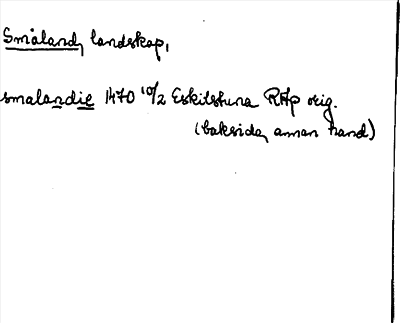 Småland, landskap,
smalandie 1470 10/2 Eskilstuna RAp orig.
(baksida, annan hand)